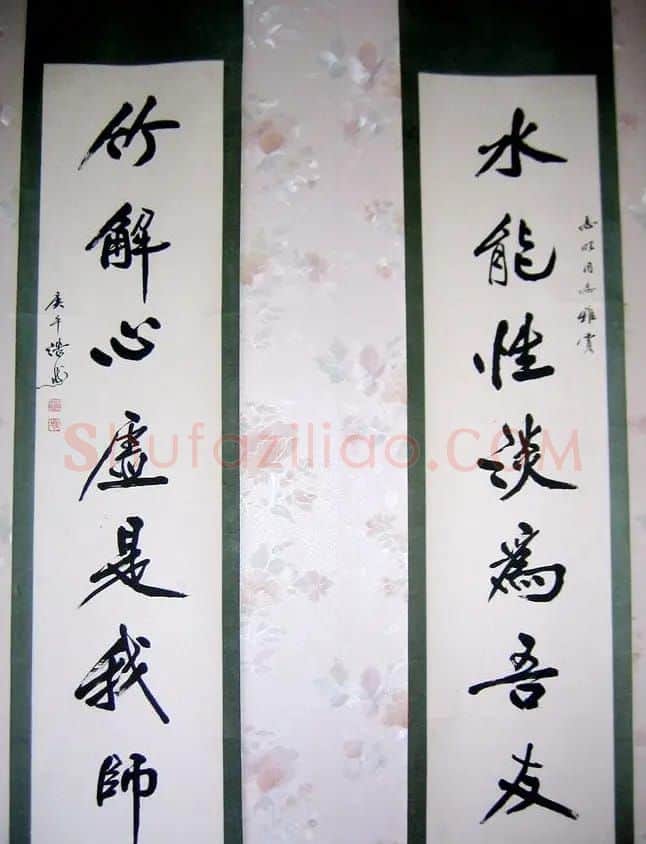 水能性淡為吾友
同志雅賞
竹解心虛是我師
Shufaziliao.COM